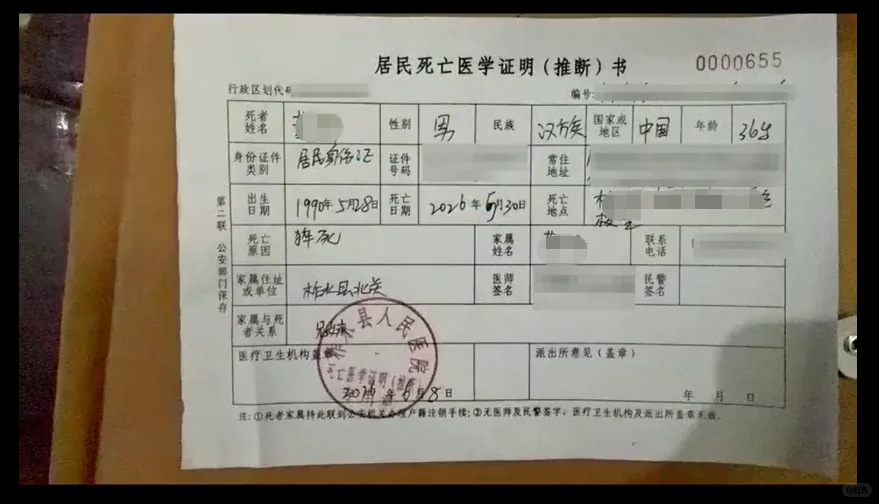 居民死亡医学证明（推断）书
0000655
行政区划代码
编号:
死者姓名 性别 男 民族 汉族 国家或地区 中国 年龄 36岁
身份证件类别 居民身份证 证件号码 常住地址
出生日期 1990年5月28日 死亡日期 2026年 月30日 死亡地点
死亡原因 猝死 家属姓名 联系电话
家属住址或单位 柞水县北关 医师签名 民警签名
家属与死者关系
医疗卫生机构盖章 派出所意见（盖章）
柞水县人民医院
死亡医学证明（推断
2026年6月8日
年 月 日
注:①死者家属持此联到公安机关办理户籍注销手续;②无医师及民警签字，医疗卫生机构及派出所盖章无效。
第二联 公安部门保存